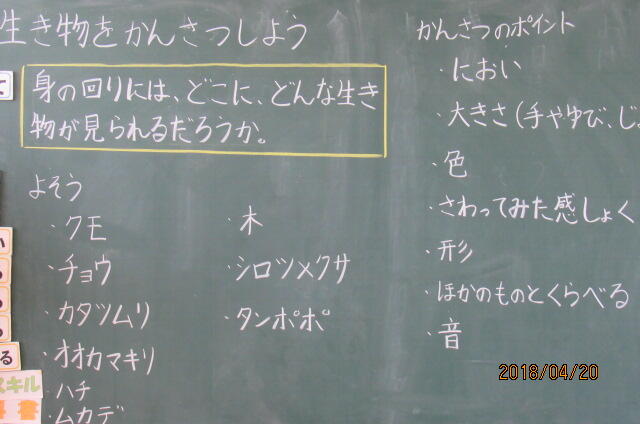 生き物をかんさつしよう
身の回りには、どこに、どんな生き
物が見られるだろうか。
よそう
・クモ
・チョウ
・カタツムリ
・オオカマキリ
・ハチ
・ムカデ
・木
・シロツメクサ
・タンポポ
かんさつのポイント
・におい
・大きさ(手やゆび、じょ
・色
・さわってみた感しょく
・形
・ほかのものとくらべる
・音
る
スキル
書
2018/04/20